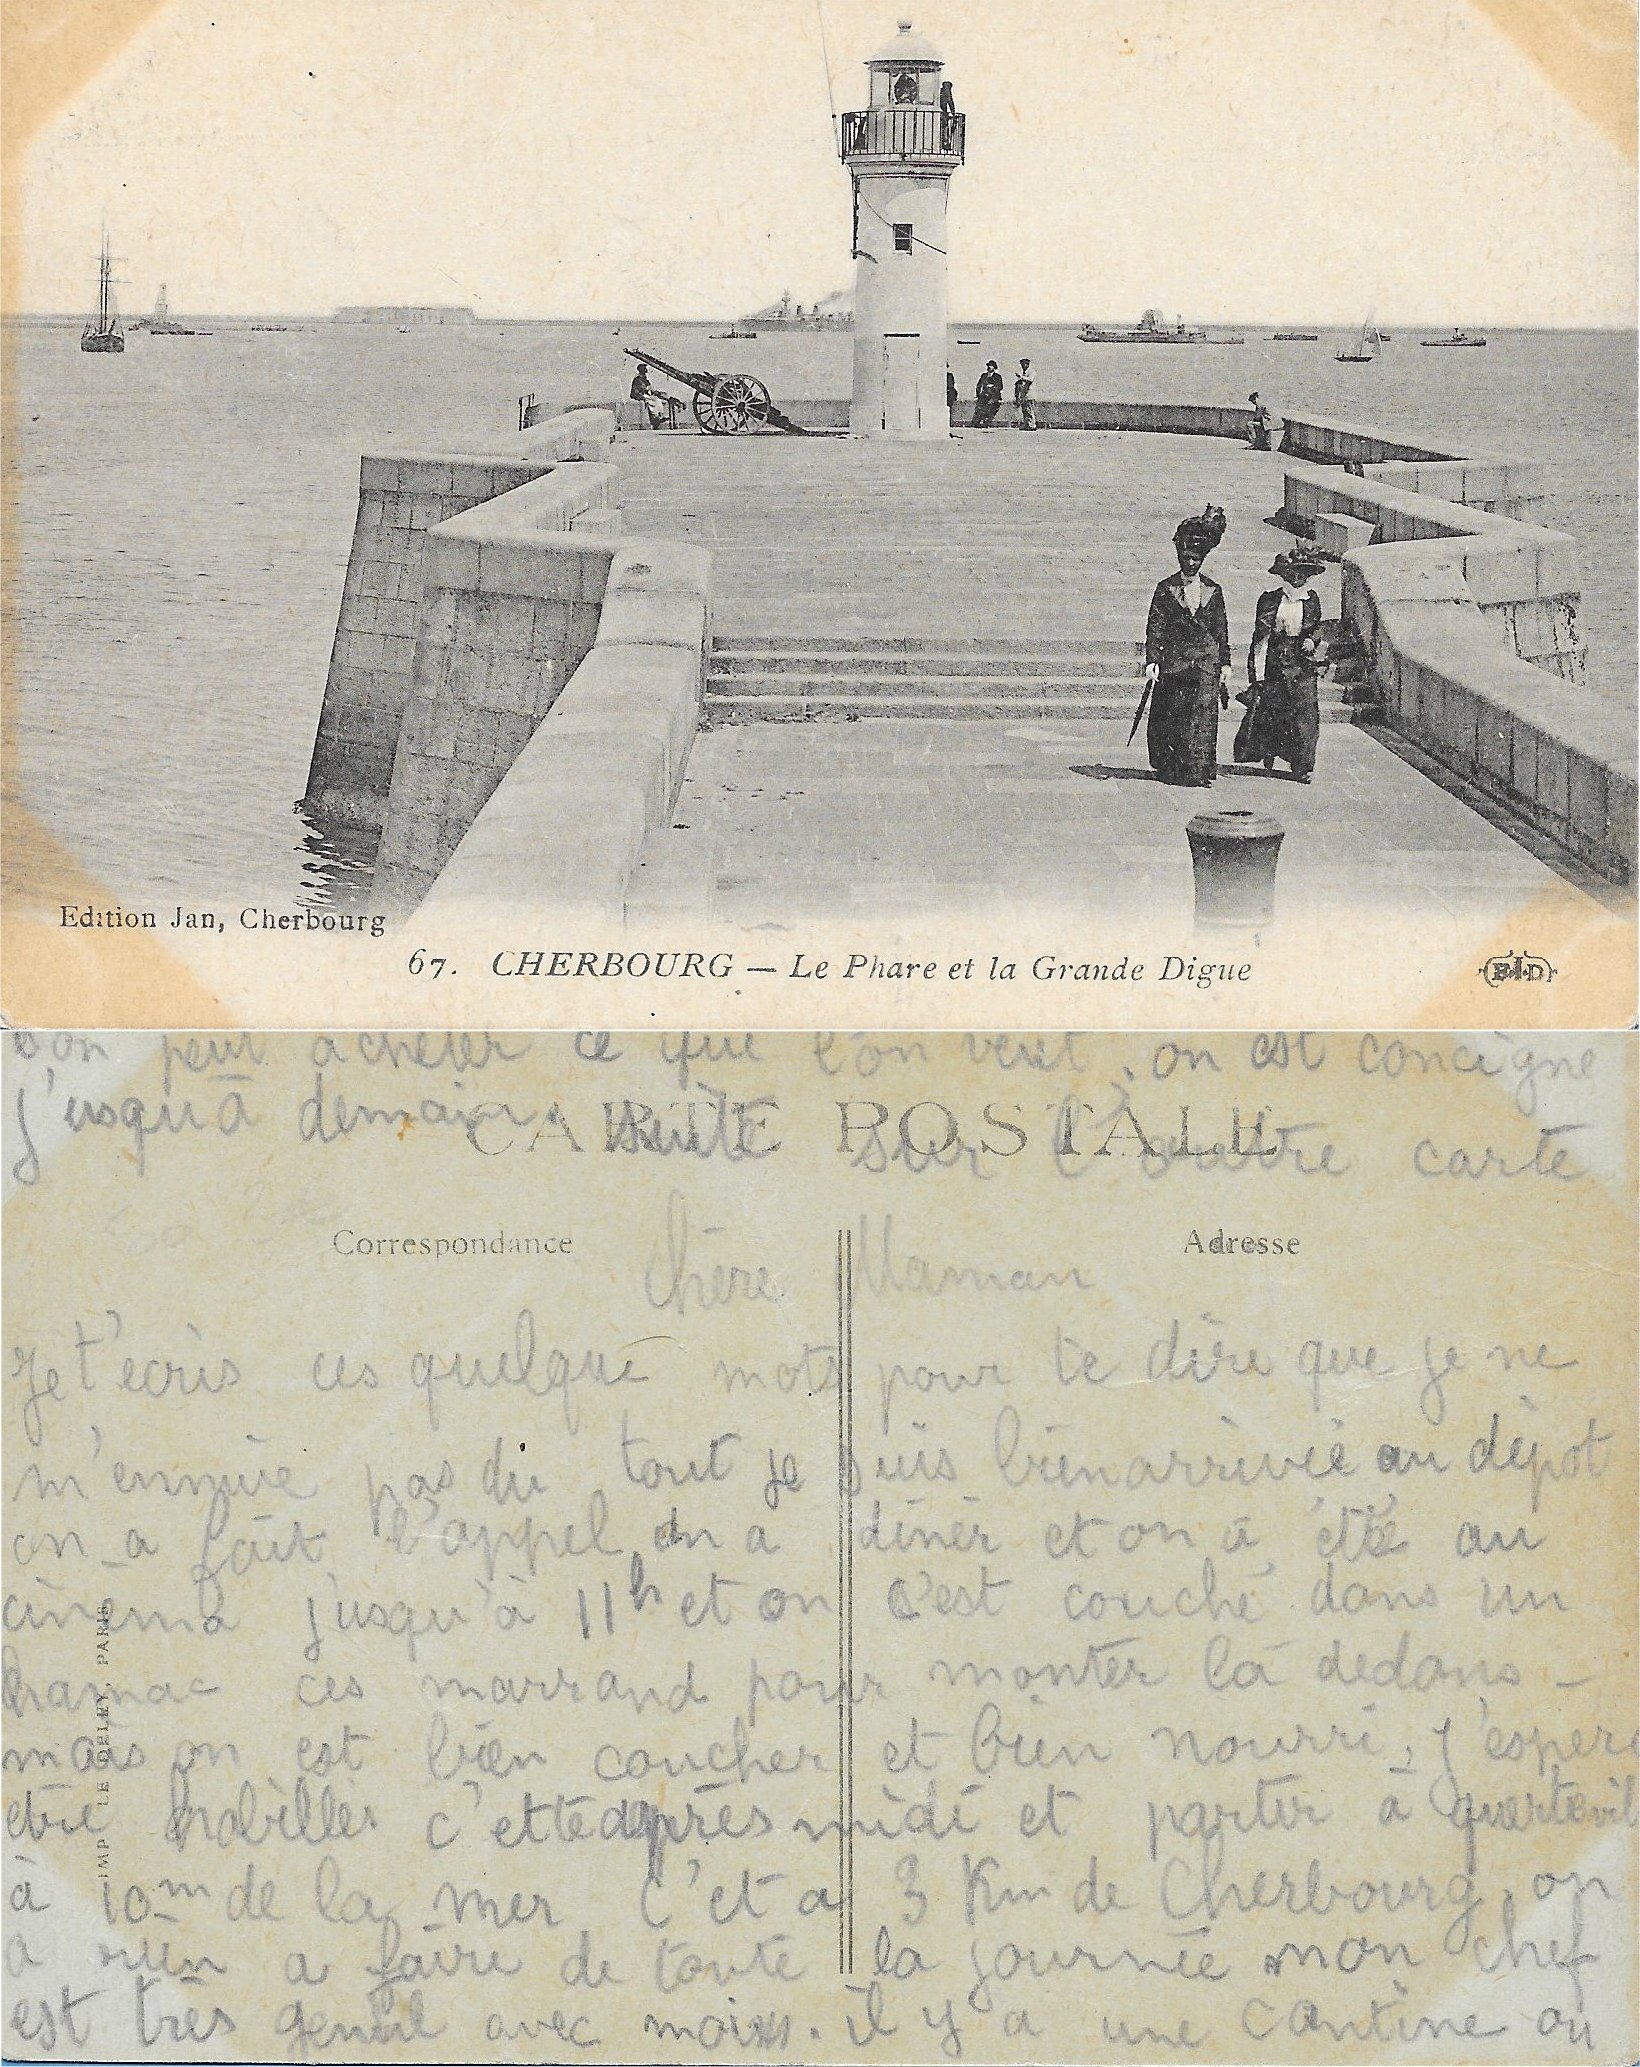 Edition Jan, Cherbourg
67. CHERBOURG — Le Phare et la Grande Digue
E.L.D
l'on peut acheter ce que l'on veut, on est concigne
j'usqu'à demain. suite sur l'autre carte
CARTE POSTALE
Correspondance
Adresse
Chère Maman
Je t'ecris ces quelque mots pour te dire que je ne
m'ennuie pas du tout je suis bien arrivée au dépot
on a fait l'appel, on a diner et on a été au
cinéma jusqu'à 11h et on s'est couché dans un
hamac ces marrand pour monter là dedans -
mais on est bien coucher et bien nourri, j'espere
etre habiller c'ette après midi et partir à querteville
à 10m de la mer C'et a 3 Km de Cherbourg, on
a rien a faire de toute la journée mon chef
est très gentil avec moi. il y a une cantine ou
IMP LE DELEY, PARIS